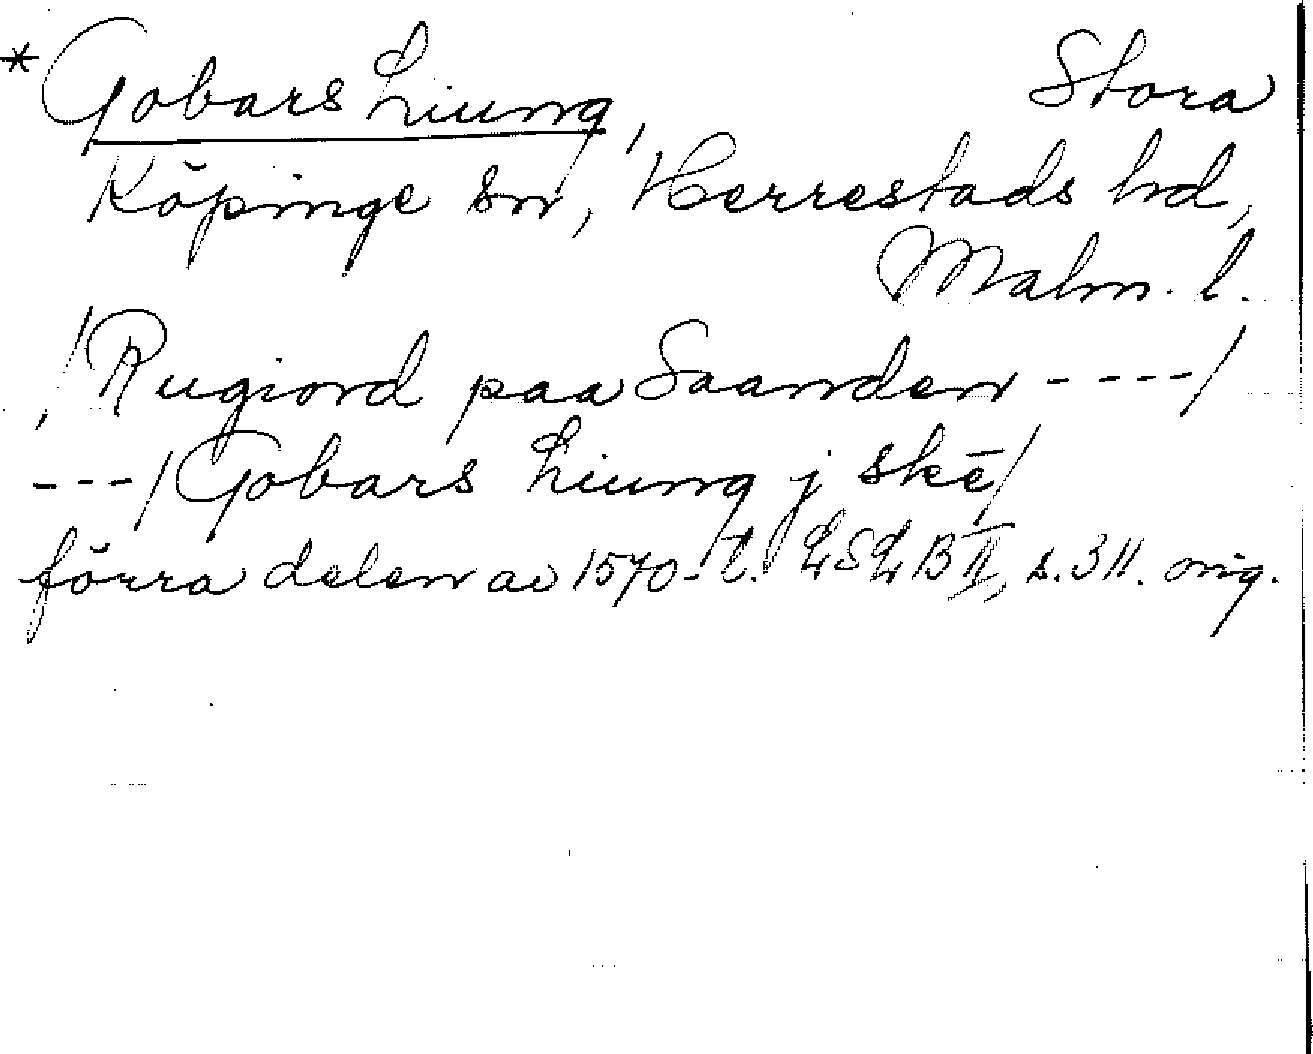 * Gobars Liung, Stora
Köpinge sn, Herrestads hd,
Malm. l.
/Rugiord paa Saanden ----/
---/Gobars Liung j skē/
förra delen av 1570-t. LSLB II, s. 311. orig.